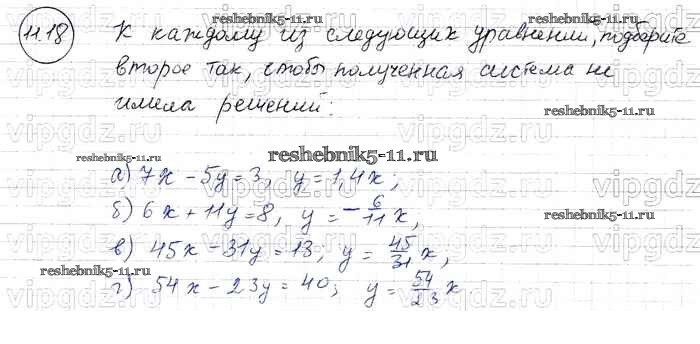 11.18 К каждому из следующих уравнении, подберите
второе так, чтобы полученная система не
имела решений:
а) 7x - 5y = 3, y = 1,4x;
б) 6x + 11y = 8, y = -6/11 x,
в) 45x - 31y = 13, y = 45/31 x,
г) 54x - 23y = 40; y = 54/23 x
reshebnik5-11.ru
reshebnik5-11.ru
reshebnik5-11.ru
reshebnik5-11.ru
reshebnik5-11.ru
vipgdz.ru